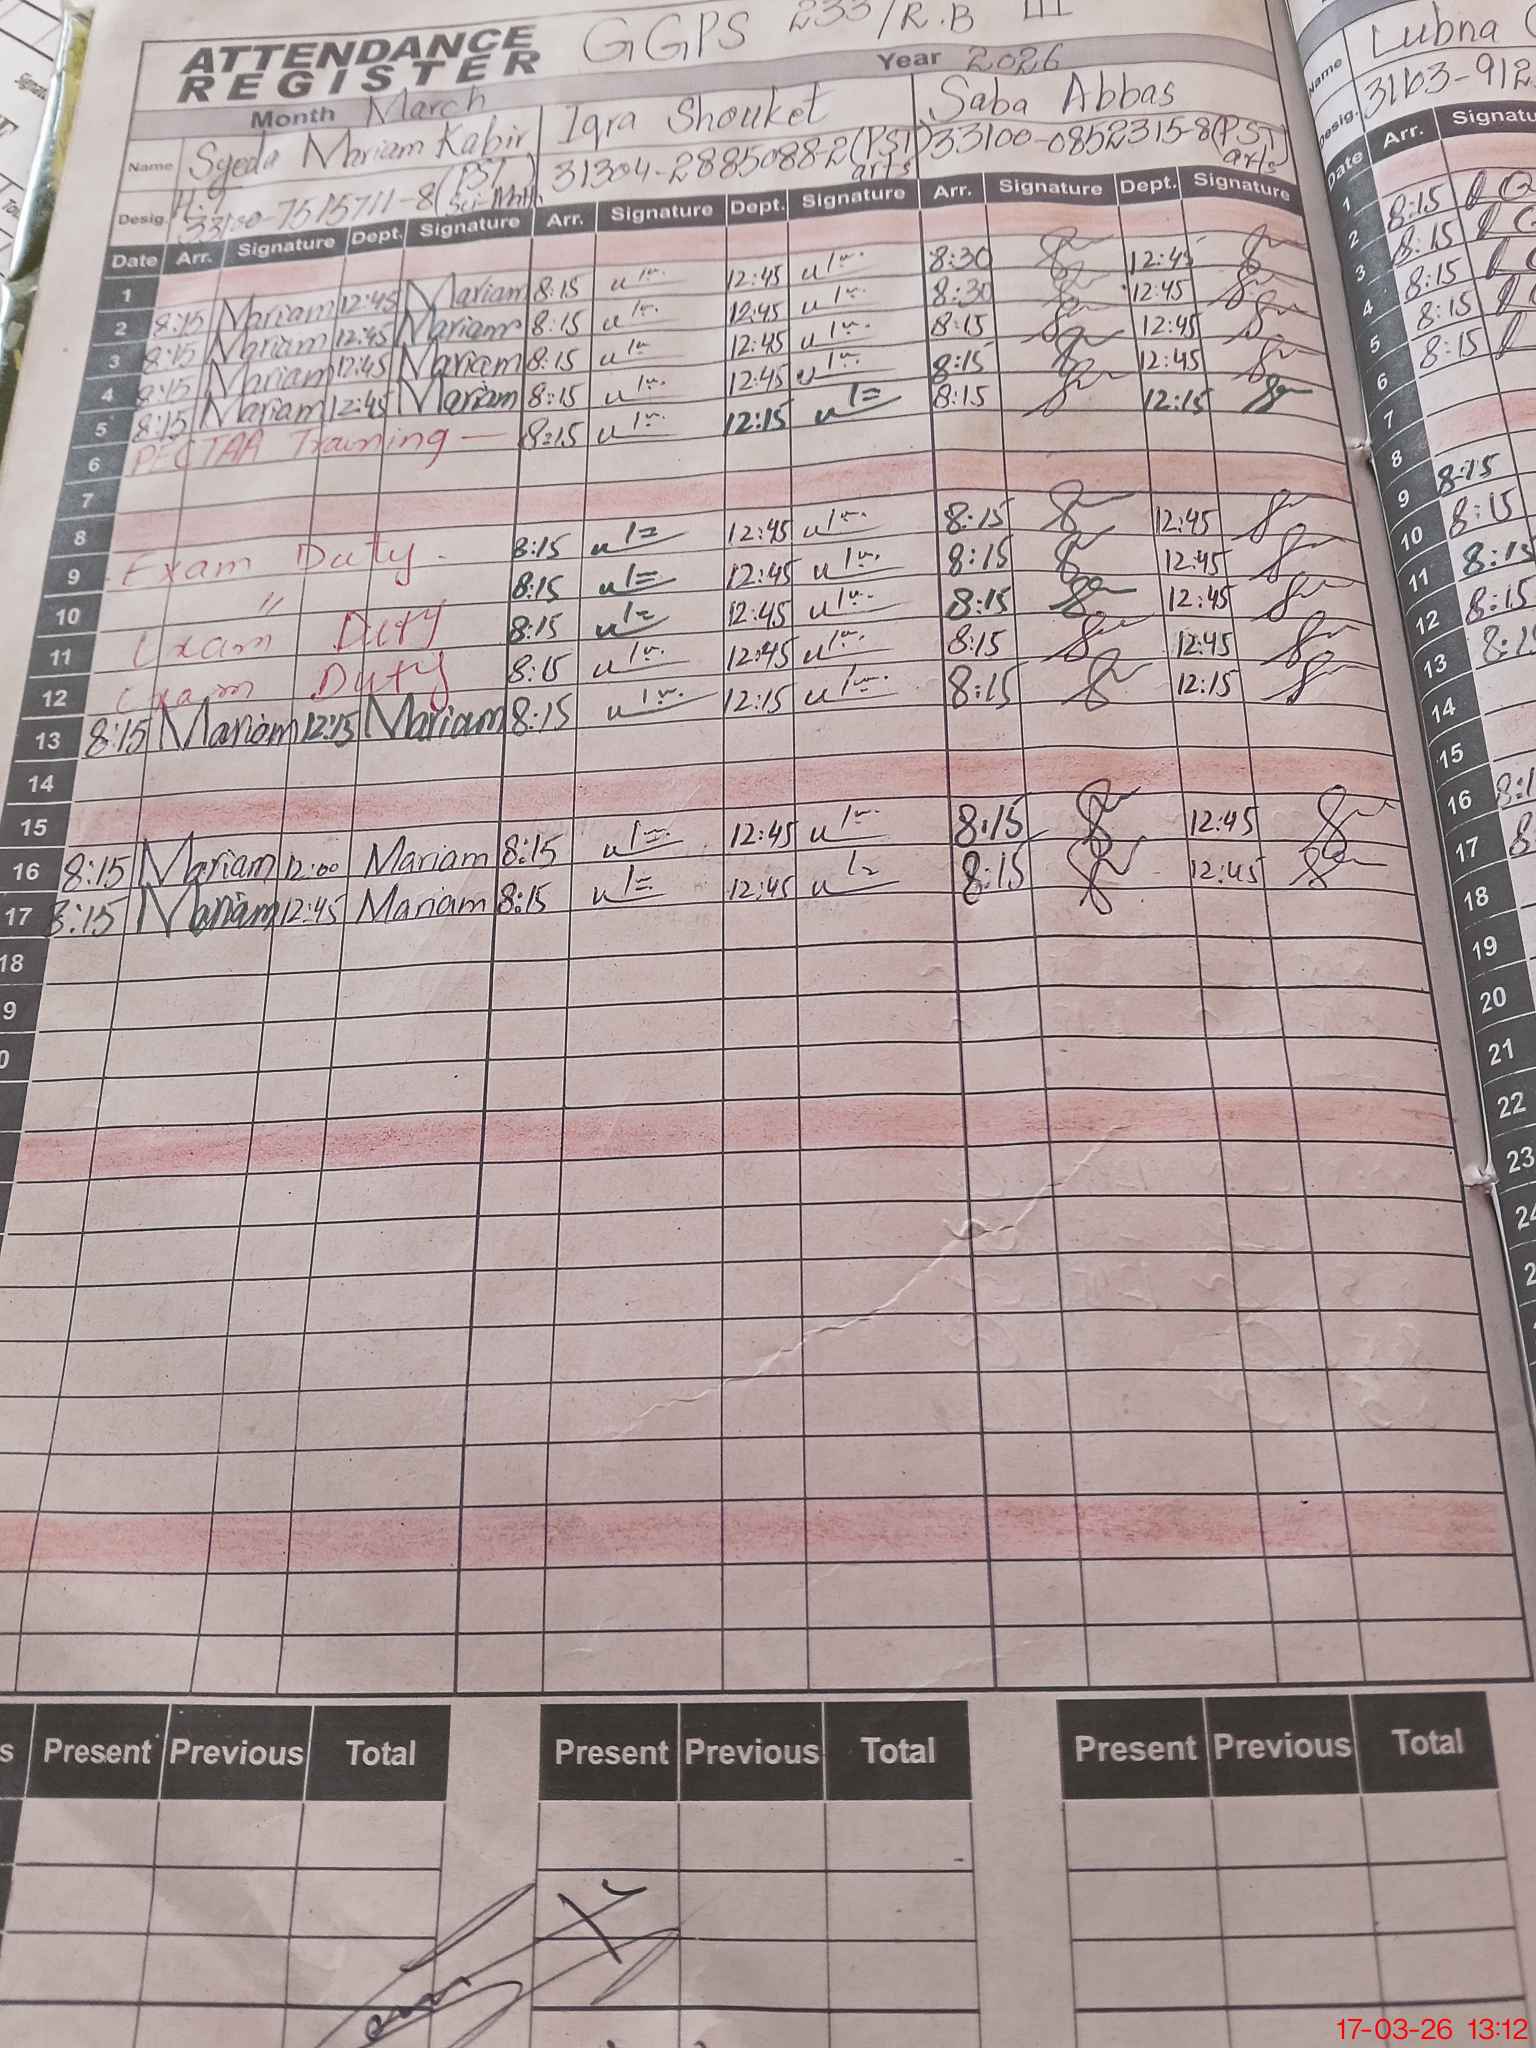 ATTENDANCE REGISTER GGPS 233/R.B III
Month March Year 2026
Name Syeda Mariam Kabir Iqra Shouket Saba Abbas
H.T (PST Sci-Math) 31304-2885088-2 (PST arts) 33100-0852315-8 (PST arts)
Desig. 33100-7515711-8
Date Arr. Signature Dept. Signature Arr. Signature Dept. Signature Arr. Signature Dept. Signature
1
2 8:15 Mariam 12:45 Mariam 8:15 12:45 8:30 12:45
3 8:15 Mariam 12:45 Mariam 8:15 12:45 8:30 12:45
4 8:15 Mariam 12:45 Mariam 8:15 12:45 8:15 12:45
5 8:15 Mariam 12:45 Mariam 8:15 12:45 8:15 12:45
6 PECTAA Training — 8:15 12:15 8:15 12:15
7
8
9 Exam Duty. 8:15 12:45 8:15 12:45
10 " 8:15 12:45 8:15 12:45
11 Exam Duty 8:15 12:45 8:15 12:45
12 Exam Duty 8:15 12:45 8:15 12:45
13 8:15 Mariam 12:15 Mariam 8:15 12:15 8:15 12:15
14
15
16 8:15 Mariam 12:00 Mariam 8:15 12:45 8:15 12:45
17 8:15 Mariam 12:45 Mariam 8:15 12:45 8:15 12:45
18
9
0
s Present Previous Total Present Previous Total Present Previous Total
Name Lubna
Desig. 3103-912
Date Arr. Signatu
1 8:15
2 8:15
3 8:15
4 8:15
5 8:15
6
7
8 8:15
9 8:15
10 8:15
11 8:15
12 8:15
13
14
15
16 8:1
17 8:
18
19
20
21
22
23
24
17-03-26 13:12